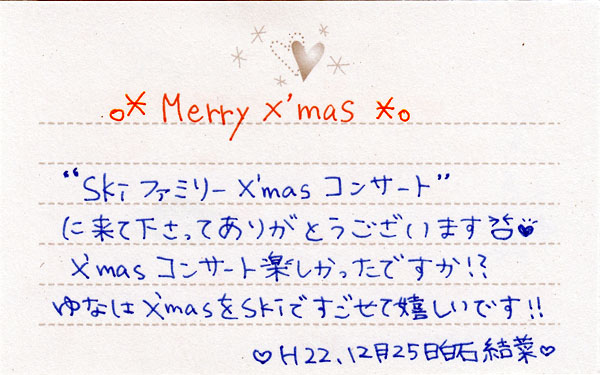 。* Merry X'mas *。
"SKi ファミリー X'mas コンサート"
に来て下さってありがとうございます
X'mas コンサート楽しかったですか!?
ゆなはX'masをSKiですごせて嬉しいです!!
♡H22.12月25日白石結菜♡